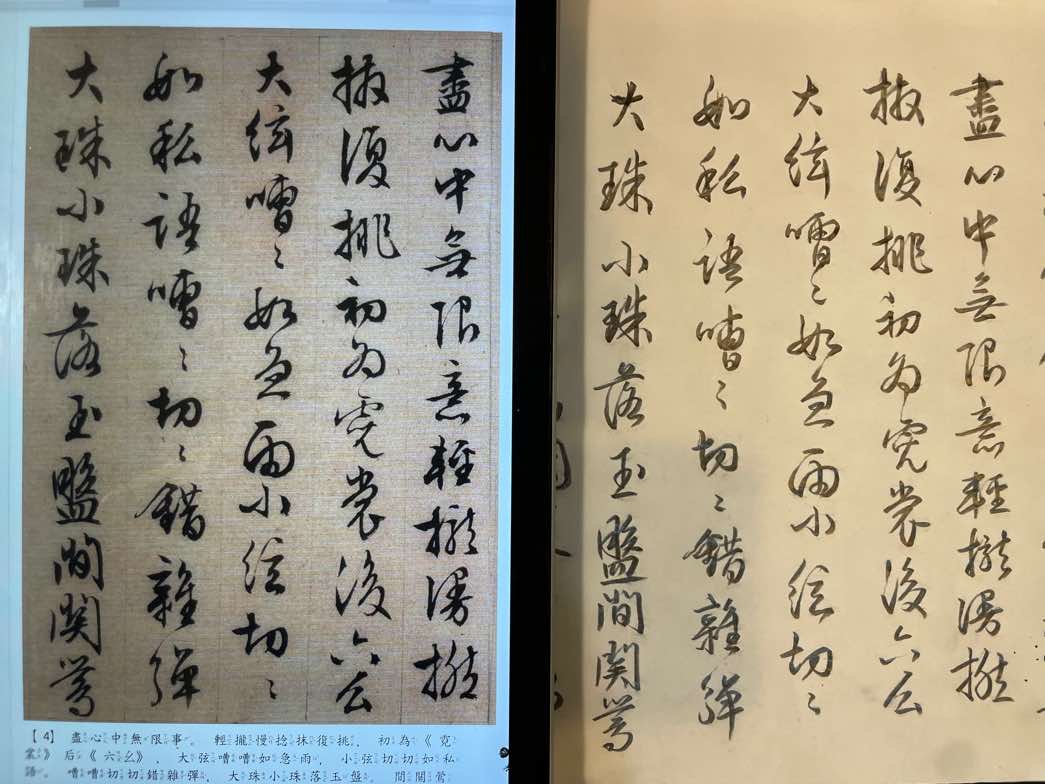 盡心中無限意輕攏漫撚
撥復挑初為霓裳後六么
大絃嘈〻如急雨小絃切〻
如私語嘈〻切〻錯雜彈
大珠小珠落玉盤間関鶯
【4】 盡心中無限事。 輕攏慢捻抹復挑，初為《霓
裳》后《六幺》，大弦嘈嘈如急雨，小弦切切如私
語。嘈嘈切切錯雜彈，大珠小珠落玉盤。間關鶯
盡心中無限意輕攏漫撚
撥復挑初為霓裳後六么
大絃嘈〻如急雨小絃切〻
如私語嘈〻切〻錯雜彈
大珠小珠落玉盤間関鶯